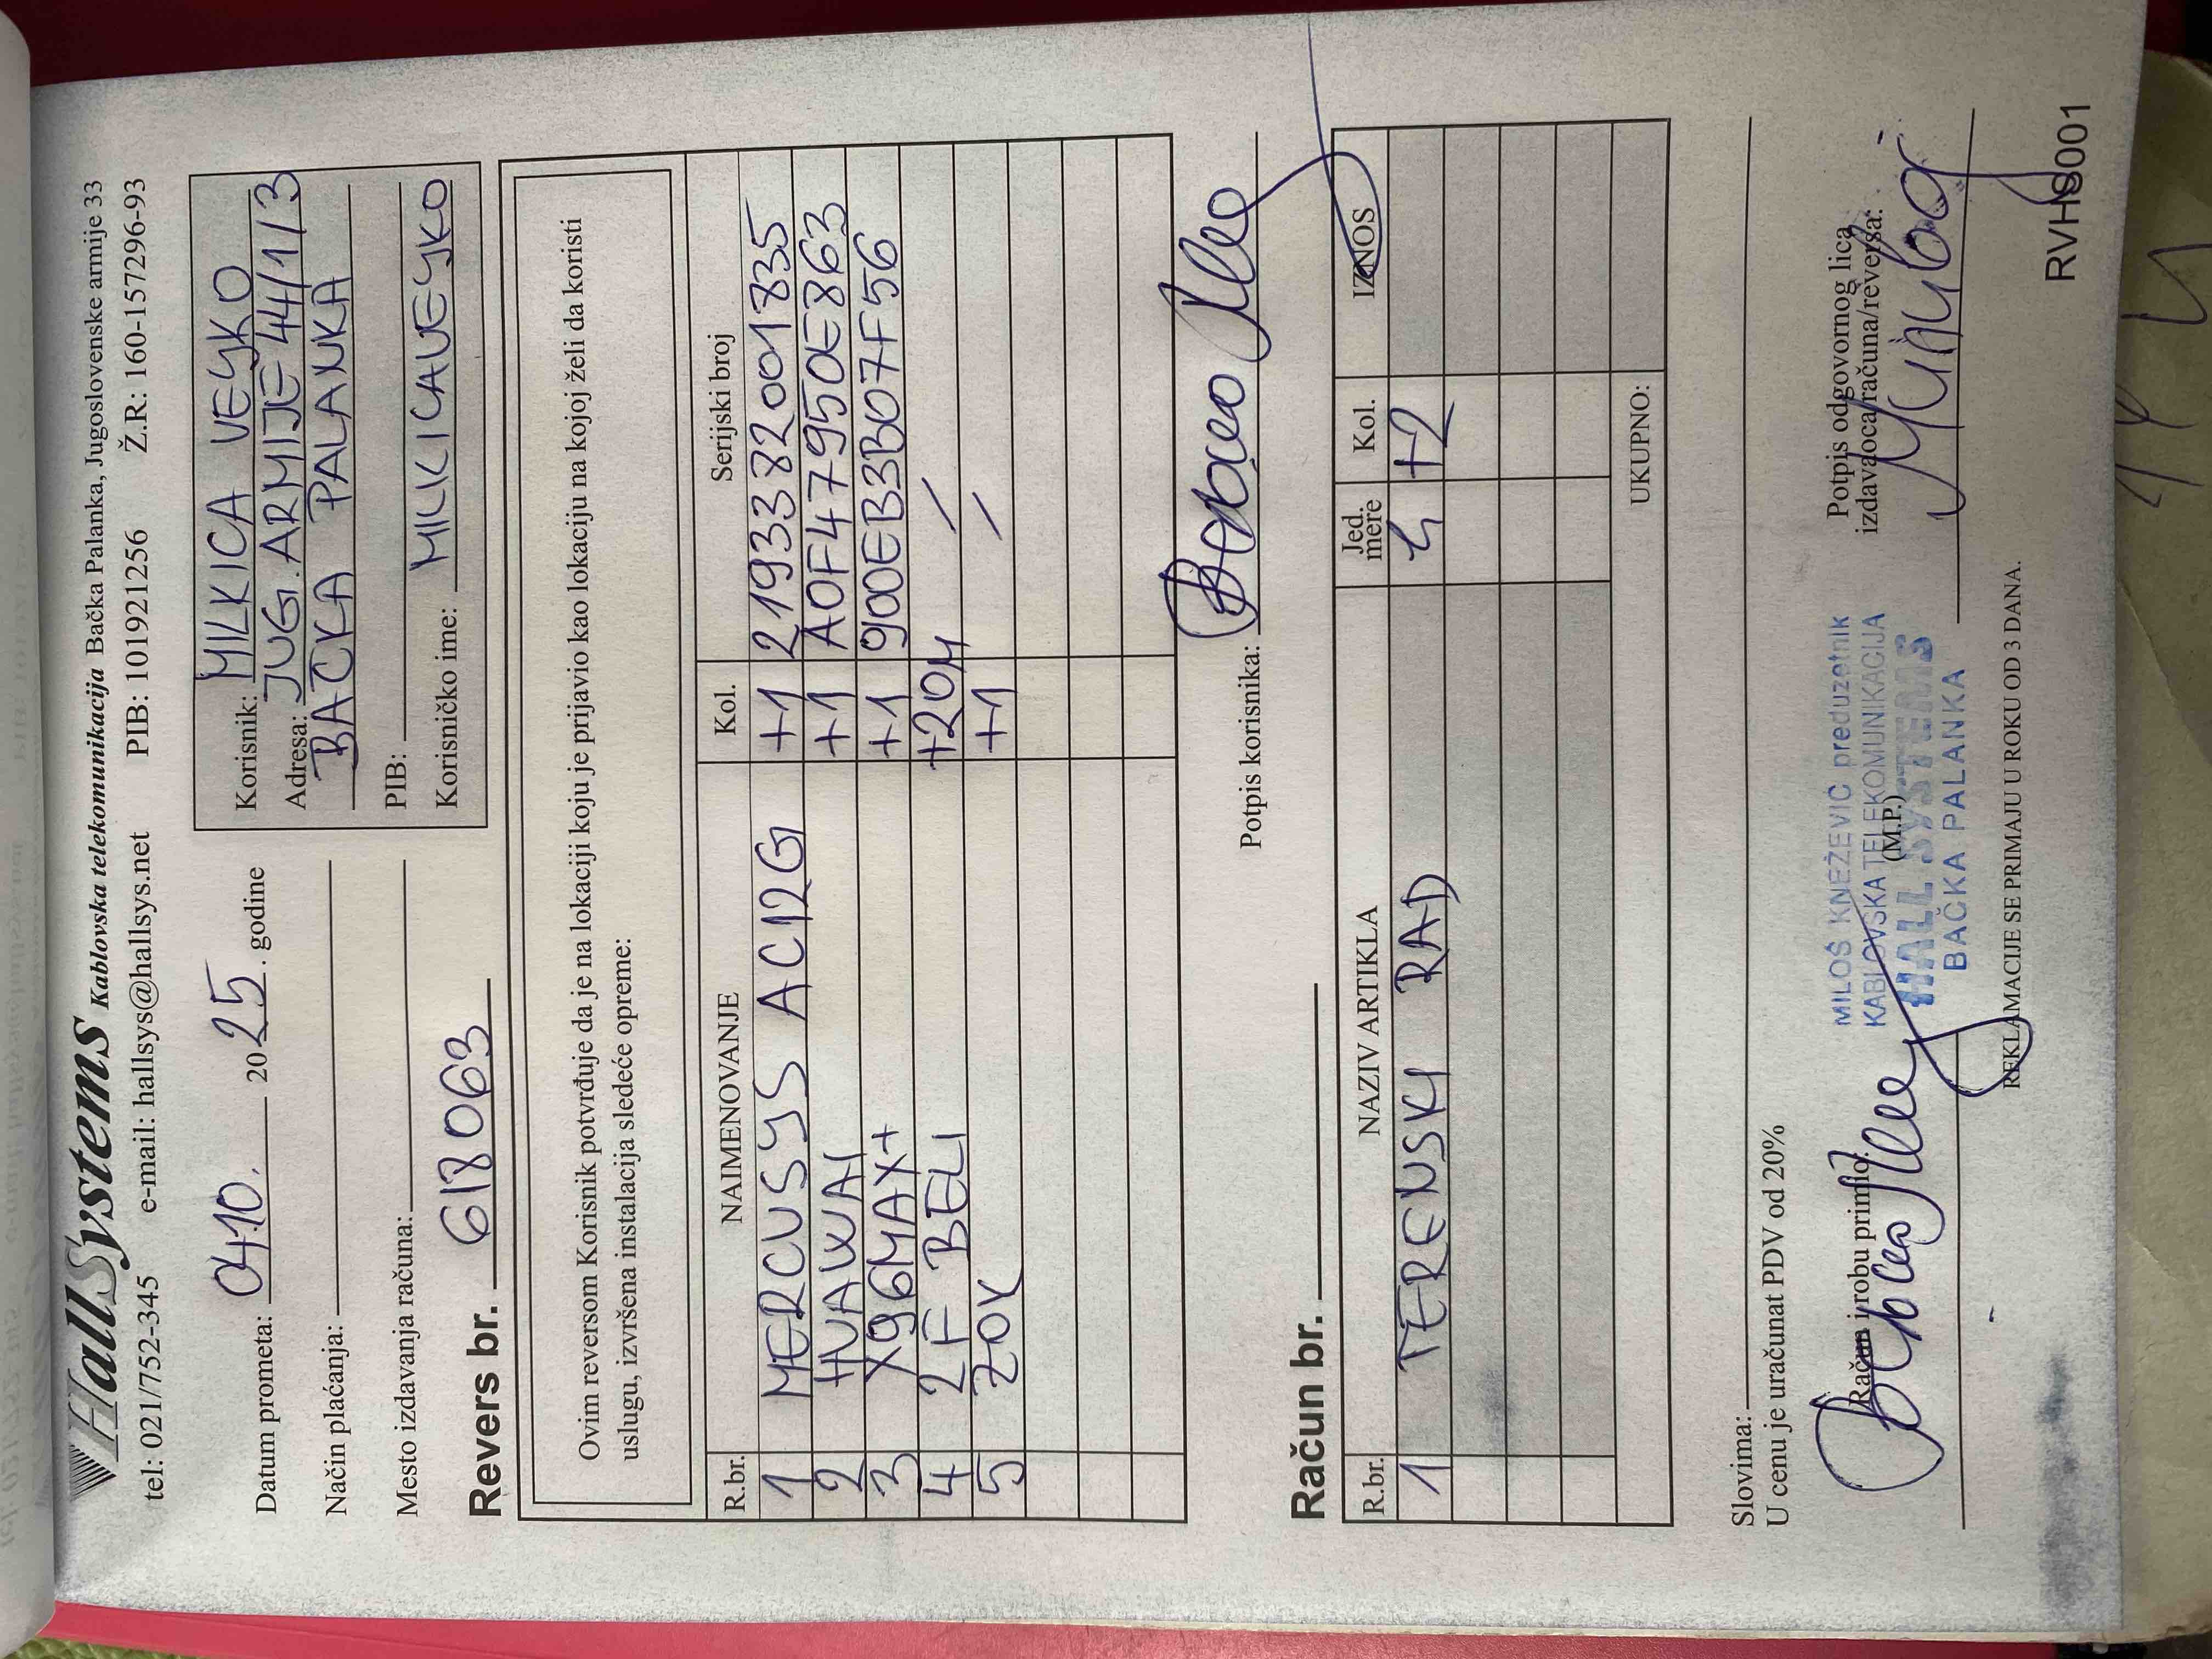 HallSystems Kablovska telekomunikacija Bačka Palanka, Jugoslovenske armije 33
tel: 021/752-345 e-mail: hallsys@hallsys.net PIB: 101921256 Ž.R: 160-157296-93
Datum prometa: 04.10. 2025. godine
Način plaćanja:
Mesto izdavanja računa:
Korisnik: MILKICA VEYKO
Adresa: JUG. ARMIJE 44/1/3
BACKA PALANKA
PIB:
Korisničko ime: MILKICAVEYKO
Revers br. 618063
Ovim reversom Korisnik potvrđuje da je na lokaciji koju je prijavio kao lokaciju na kojoj želi da koristi
uslugu, izvršena instalacija sledeće opreme:
R.br. NAIMENOVANJE Kol. Serijski broj
1 MERCUSYS AC12G +1 2193382001835
2 HUAWAI +1 A0F47950E863
3 X96MAX+ +1 900EB3B07F56
4 2F BELI +20M /
5 ZOY +1 /
Potpis korisnika:
Račun br.
R.br. NAZIV ARTIKLA Jed. mere Kol. IZNOS
1 TERENSKI RAD h +2
UKUPNO:
Slovima:
U cenu je uračunat PDV od 20%
Račun i robu primio:
(M.P.)
MILOŠ KNEŽEVIĆ preduzetnik
KABLOVSKA TELEKOMUNIKACIJA
HALL SYSTEMS
BAČKA PALANKA
Potpis odgovornog lica
izdavaoca računa/reversa:
REKLAMACIJE SE PRIMAJU U ROKU OD 3 DANA.
RVHS001